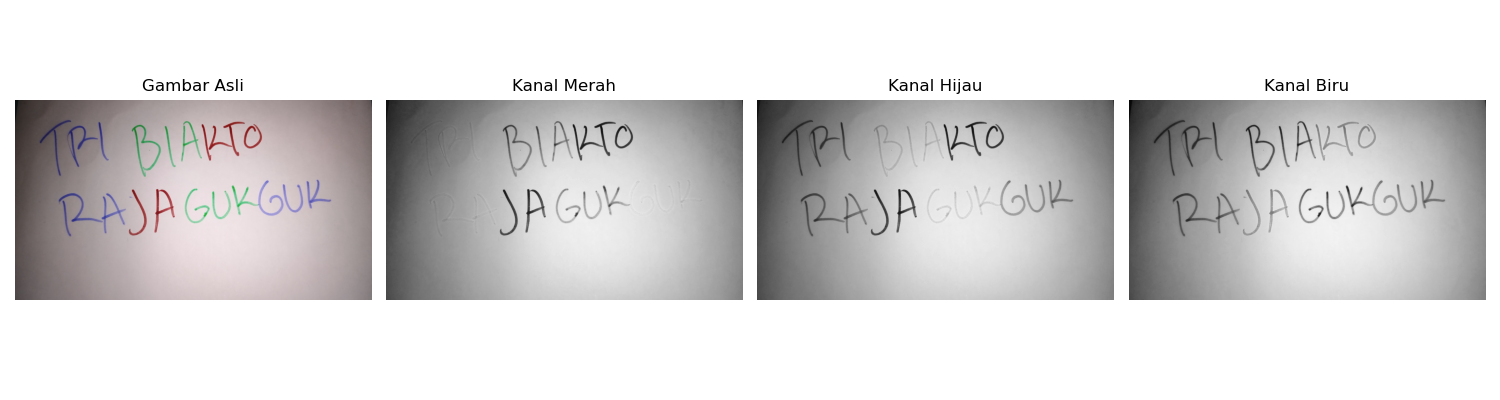 Gambar Asli
TRI BIAKTO
RAJAGUKGUK
Kanal Merah
TRI BIAKTO
RAJAGUKGUK
Kanal Hijau
TRI BIAKTO
RAJAGUKGUK
Kanal Biru
TRI BIAKTO
RAJAGUKGUK